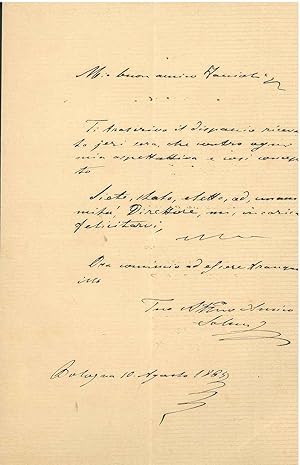 Mio buon amico
Ti trascrivo il dispaccio ricevu
to jeri sera, che contro ogni
mia aspettativa è così concepi
to
Siete, stato, eletto, ad, unani
mità, Direttore, mi, incarico
felicitarvi,
Ora comincio ad essere tranqu
illo
Tuo Amico
Bologna 10 Agosto